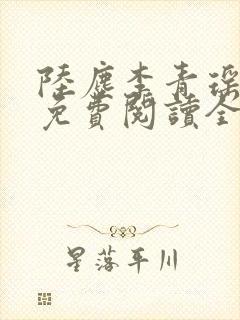 陸塵李青瑶
免費閱讀全
星落平川